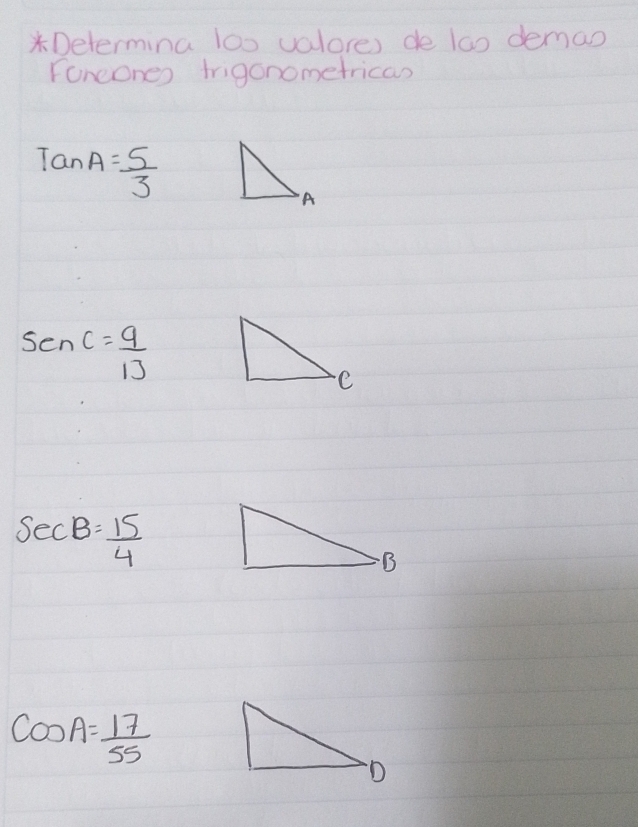 *Determina los valores de las demas
Funciones trigonometricas
TanA=5/3
A
Sen C=9/13
C
SecB=15/4
B
CosA=17/55
D